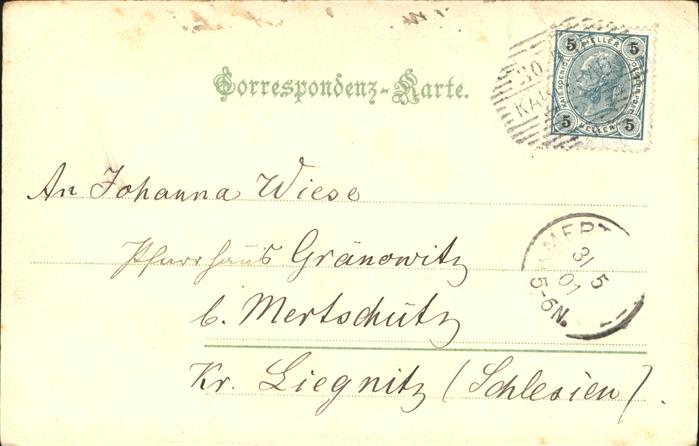 Correspondenz-Karte.
5 HELLER 5
5 HELLER 5
30.
An Johanna Wiese
Pfarrhaus Gränowitz
b. Mertschütz
Kr. Liegnitz (Schlesien).
MERT
31 5
01
5-6N.